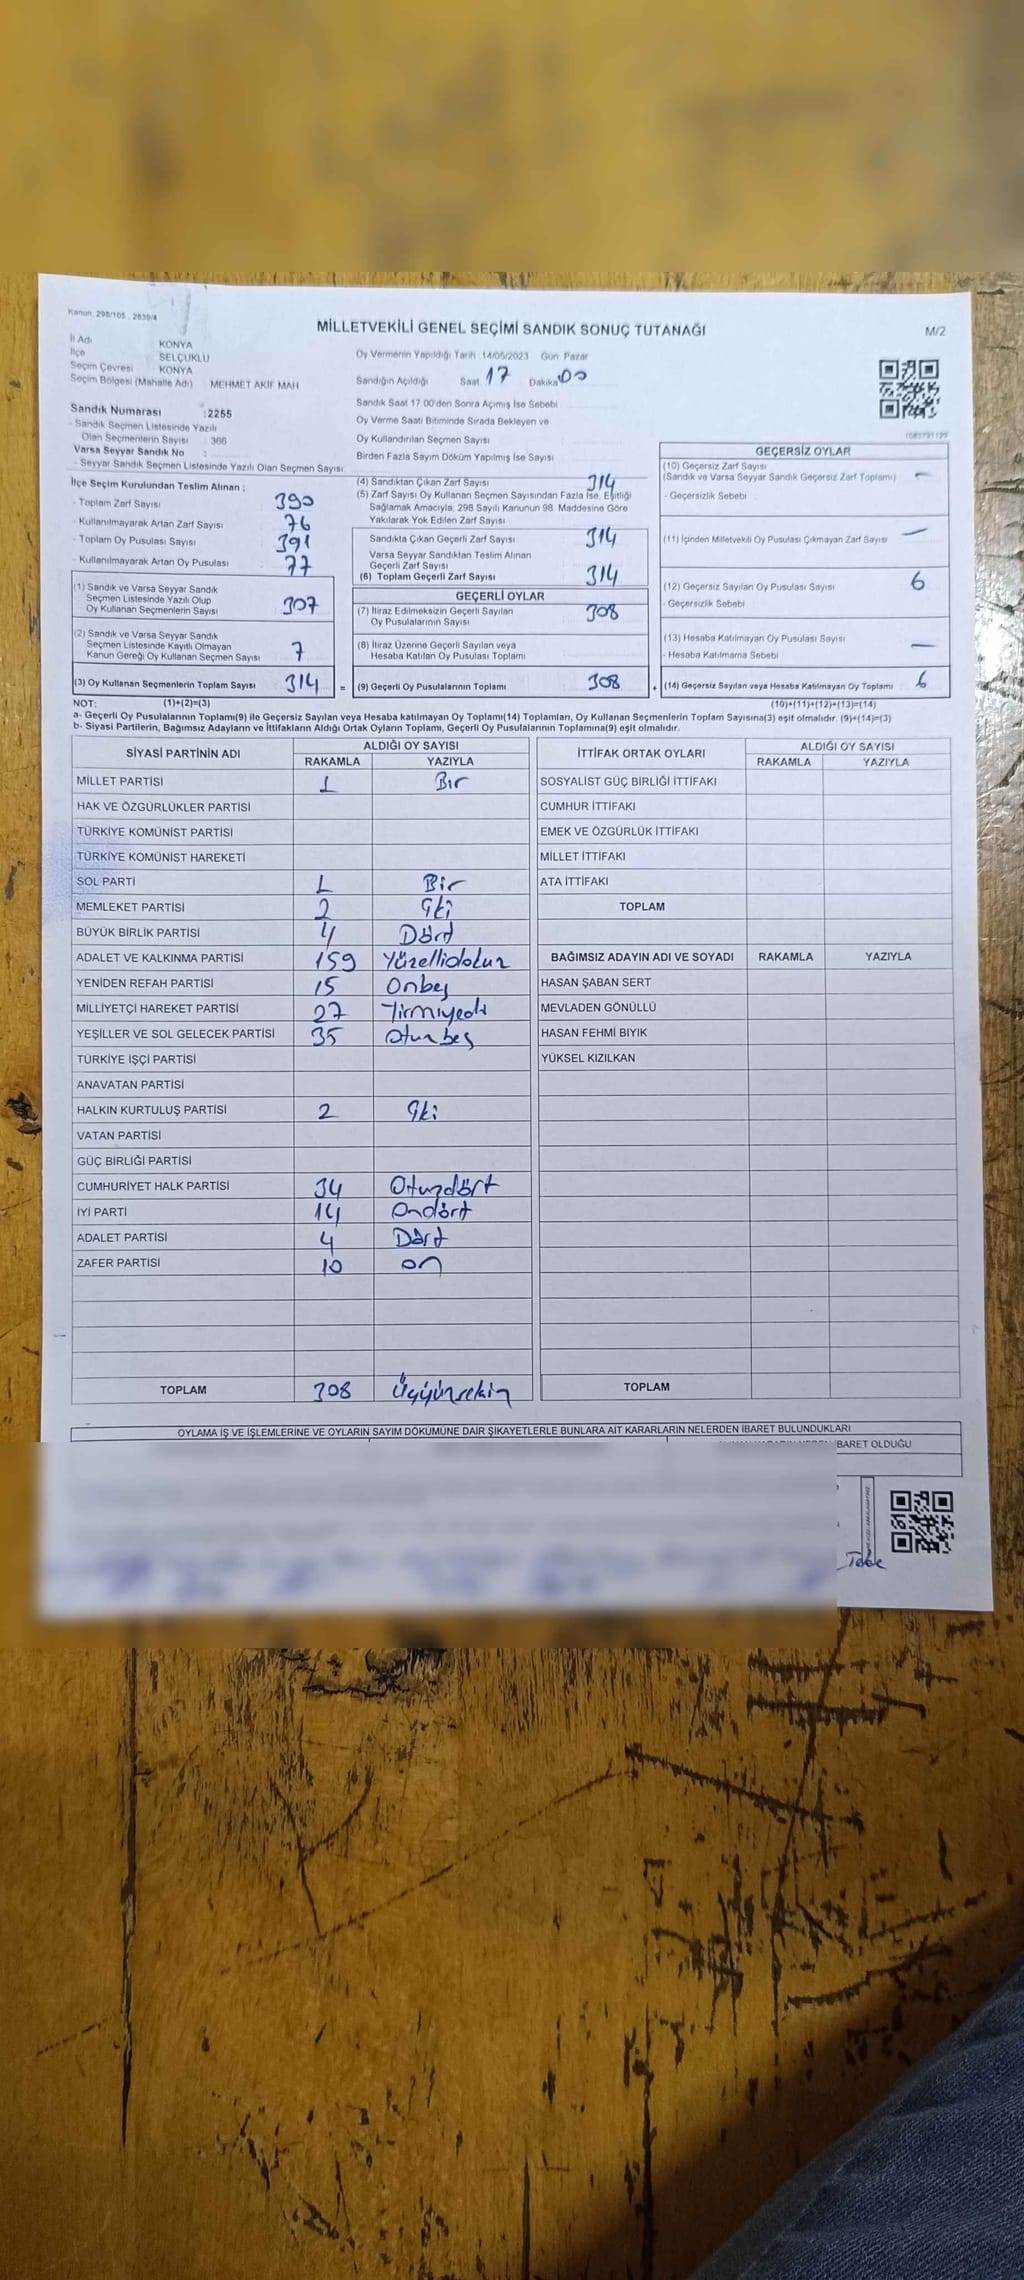 Kanun: 298/105 , 2839/4
MİLLETVEKİLİ GENEL SEÇİMİ SANDIK SONUÇ TUTANAĞI
M/2
İl Adı KONYA
İlçe SELÇUKLU
Seçim Çevresi KONYA
Seçim Bölgesi (Mahalle Adı) : MEHMET AKİF MAH
Sandık Numarası :2255
- Sandık Seçmen Listesinde Yazılı
Olan Seçmenlerin Sayısı : 366
Varsa Seyyar Sandık No :
- Seyyar Sandık Seçmen Listesinde Yazılı Olan Seçmen Sayısı:
Oy Vermenin Yapıldığı Tarih 14/05/2023 Gün Pazar
Sandığın Açıldığı Saat 17 Dakika 00
Sandık Saat 17:00'den Sonra Açılmış İse Sebebi
Oy Verme Saati Bitiminde Sırada Bekleyen ve
Oy Kullandırılan Seçmen Sayısı
Birden Fazla Sayım Döküm Yapılmış İse Sayısı
İlçe Seçim Kurulundan Teslim Alınan ;
- Toplam Zarf Sayısı 390
- Kullanılmayarak Artan Zarf Sayısı 76
- Toplam Oy Pusulası Sayısı 391
- Kullanılmayarak Artan Oy Pusulası 77
(1) Sandık ve Varsa Seyyar Sandık
Seçmen Listesinde Yazılı Olup
Oy Kullanan Seçmenlerin Sayısı 307
(2) Sandık ve Varsa Seyyar Sandık
Seçmen Listesinde Kayıtlı Olmayan
Kanun Gereği Oy Kullanan Seçmen Sayısı 7
(3) Oy Kullanan Seçmenlerin Toplam Sayısı 314 =
(4) Sandıktan Çıkan Zarf Sayısı 314
(5) Zarf Sayısı Oy Kullanan Seçmen Sayısından Fazla İse, Eşitliği
Sağlamak Amacıyla, 298 Sayılı Kanunun 98. Maddesine Göre
Yakılarak Yok Edilen Zarf Sayısı
Sandıkta Çıkan Geçerli Zarf Sayısı 314
Varsa Seyyar Sandıktan Teslim Alınan
Geçerli Zarf Sayısı
(6) Toplam Geçerli Zarf Sayısı 314
GEÇERLİ OYLAR
(7) İtiraz Edilmeksizin Geçerli Sayılan
Oy Pusulalarının Sayısı 308
(8) İtiraz Üzerine Geçerli Sayılan veya
Hesaba Katılan Oy Pusulası Toplamı
(9) Geçerli Oy Pusulalarının Toplamı 308 +
GEÇERSİZ OYLAR
(10) Geçersiz Zarf Sayısı
(Sandık ve Varsa Seyyar Sandık Geçersiz Zarf Toplamı) -
- Geçersizlik Sebebi
(11) İçinden Milletvekili Oy Pusulası Çıkmayan Zarf Sayısı -
(12) Geçersiz Sayılan Oy Pusulası Sayısı 6
- Geçersizlik Sebebi
(13) Hesaba Katılmayan Oy Pusulası Sayısı
- Hesaba Katılmama Sebebi -
(14) Geçersiz Sayılan veya Hesaba Katılmayan Oy Toplamı 6
NOT: (1)+(2)=(3) (10)+(11)+(12)+(13)=(14)
a- Geçerli Oy Pusulalarının Toplamı(9) ile Geçersiz Sayılan veya Hesaba katılmayan Oy Toplamı(14) Toplamları, Oy Kullanan Seçmenlerin Toplam Sayısına(3) eşit olmalıdır. (9)+(14)=(3)
b- Siyasi Partilerin, Bağımsız Adayların ve İttifakların Aldığı Ortak Oyların Toplamı, Geçerli Oy Pusulalarının Toplamına(9) eşit olmalıdır.
SİYASİ PARTİNİN ADI ALDIĞI OY SAYISI
RAKAMLA YAZIYLA
MİLLET PARTİSİ 1 Bir
HAK VE ÖZGÜRLÜKLER PARTİSİ
TÜRKİYE KOMÜNİST PARTİSİ
TÜRKİYE KOMÜNİST HAREKETİ
SOL PARTİ 1 Bir
MEMLEKET PARTİSİ 2 İki
BÜYÜK BİRLİK PARTİSİ 4 Dört
ADALET VE KALKINMA PARTİSİ 159 Yüzellidokuz
YENİDEN REFAH PARTİSİ 15 Onbeş
MİLLİYETÇİ HAREKET PARTİSİ 27 Yirmiyedi
YEŞİLLER VE SOL GELECEK PARTİSİ 35 Otuzbeş
TÜRKİYE İŞÇİ PARTİSİ
ANAVATAN PARTİSİ
HALKIN KURTULUŞ PARTİSİ 2 İki
VATAN PARTİSİ
GÜÇ BİRLİĞİ PARTİSİ
CUMHURİYET HALK PARTİSİ 34 Otuzdört
İYİ PARTİ 14 Ondört
ADALET PARTİSİ 4 Dört
ZAFER PARTİSİ 10 on
TOPLAM 308 Üçyüzsekiz
İTTİFAK ORTAK OYLARI ALDIĞI OY SAYISI
RAKAMLA YAZIYLA
SOSYALİST GÜÇ BİRLİĞİ İTTİFAKI
CUMHUR İTTİFAKI
EMEK VE ÖZGÜRLÜK İTTİFAKI
MİLLET İTTİFAKI
ATA İTTİFAKI
TOPLAM
BAĞIMSIZ ADAYIN ADI VE SOYADI RAKAMLA YAZIYLA
HASAN ŞABAN SERT
MEVLADEN GÖNÜLLÜ
HASAN FEHMİ BIYIK
YÜKSEL KIZILKAN
TOPLAM
OYLAMA İŞ VE İŞLEMLERİNE VE OYLARIN SAYIM DÖKÜMÜNE DAİR ŞİKAYETLERLE BUNLARA AİT KARARLARIN NELERDEN İBARET BULUNDUKLARI
İBARET OLDUĞU